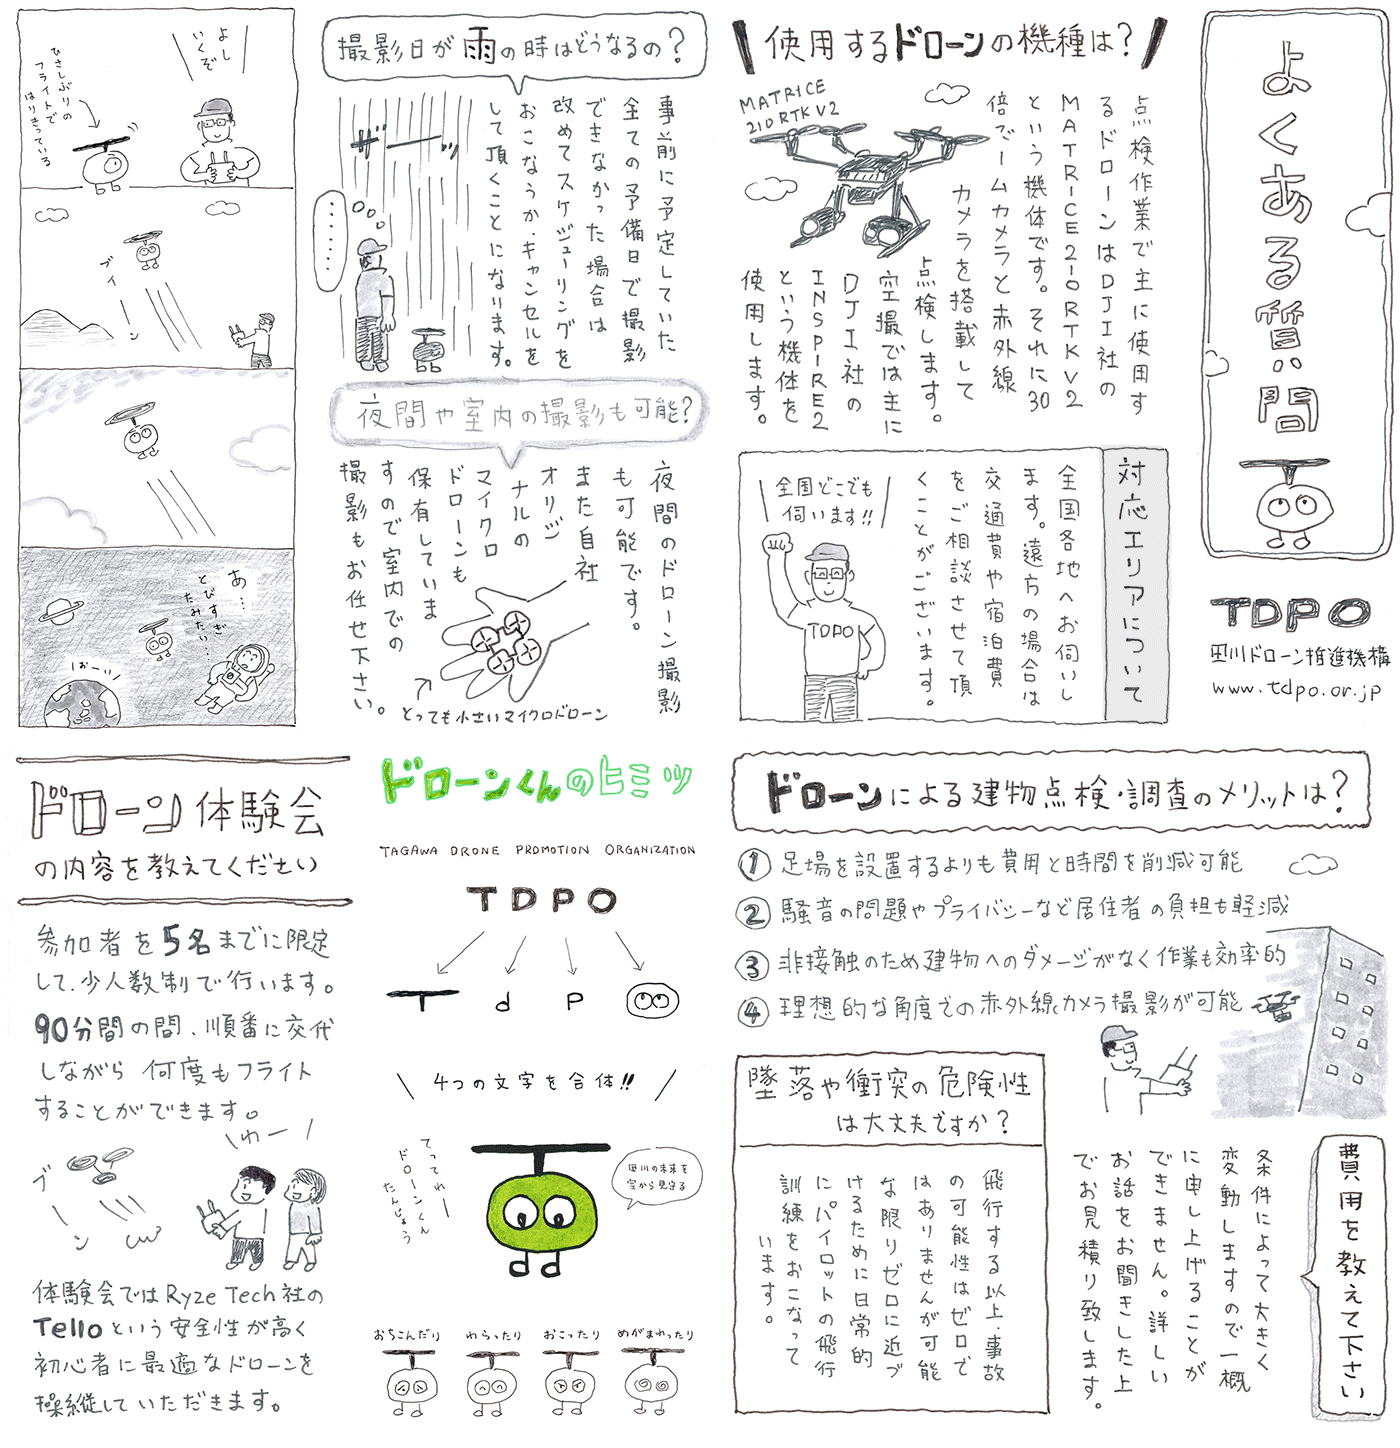 よくある質問
TDPO
田川ドローン推進機構
www.tdpo.or.jp
使用するドローンの機種は？
MATRICE
210 RTK V2
点検作業で主に使用す
るドローンはDJI社の
MATRICE210RTKV2
という機体です。それに30
倍ズームカメラと赤外線
カメラを搭載して
点検します。
空撮では主に
DJI社の
INSPIRE2
という機体を
使用します。
対応エリアについて
全国各地へお伺いし
ます。遠方の場合は
交通費や宿泊費
をご相談させて頂
くことがございます。
全国どこでも
伺います!!
TDPO
撮影日が雨の時はどうなるの？
事前に予定していた
全ての予備日で撮影
できなかった場合は
改めてスケジューリングを
おこなうか、キャンセルを
して頂くことになります。
ザーッ
……
夜間や室内の撮影も可能？
夜間のドローン撮影
も可能です。
また自社
オリジ
ナルの
マイクロ
ドローンも
保有していま
すので室内での
撮影もお任せ下さい。
とっても小さいマイクロドローン
よし
いくぞ
ひさしぶりの
フライトで
はりきっている
ブイーン
あ…
とびすぎ
たみたい…
おーい
ドローンによる建物点検・調査のメリットは？
① 足場を設置するよりも費用と時間を削減可能
② 騒音の問題やプライバシーなど居住者の負担も軽減
③ 非接触のため建物へのダメージがなく作業も効率的
④ 理想的な角度での赤外線カメラ撮影が可能
費用を教えて下さい
条件によって大きく
変動しますので一概
に申し上げることが
できません。詳しい
お話をお聞きした上
でお見積り致します。
墜落や衝突の危険性
は大丈夫ですか？
飛行する以上、事故
の可能性はゼロで
はありませんが可能
な限りゼロに近づ
けるために日常的
にパイロットの飛行
訓練をおこなって
います。
ドローンくんのヒミツ
TAGAWA DRONE PROMOTION ORGANIZATION
TDPO
T d P
4つの文字を合体!!
てってれー
ドローンくん
たんじょう
田川の未来を
空から見守る
おちこんだり
わらったり
おこったり
めがまわったり
ドローン体験会
の内容を教えてください
参加者を5名までに限定
して、少人数制で行います。
90分間の間、順番に交代
しながら何度もフライト
することができます。
わー
ブーン
体験会ではRyze Tech社の
Telloという安全性が高く
初心者に最適なドローンを
操縦していただきます。